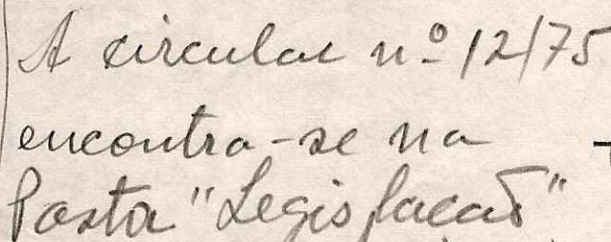 A circular nº 12/75
encontra-se na
Pasta "Legislação"